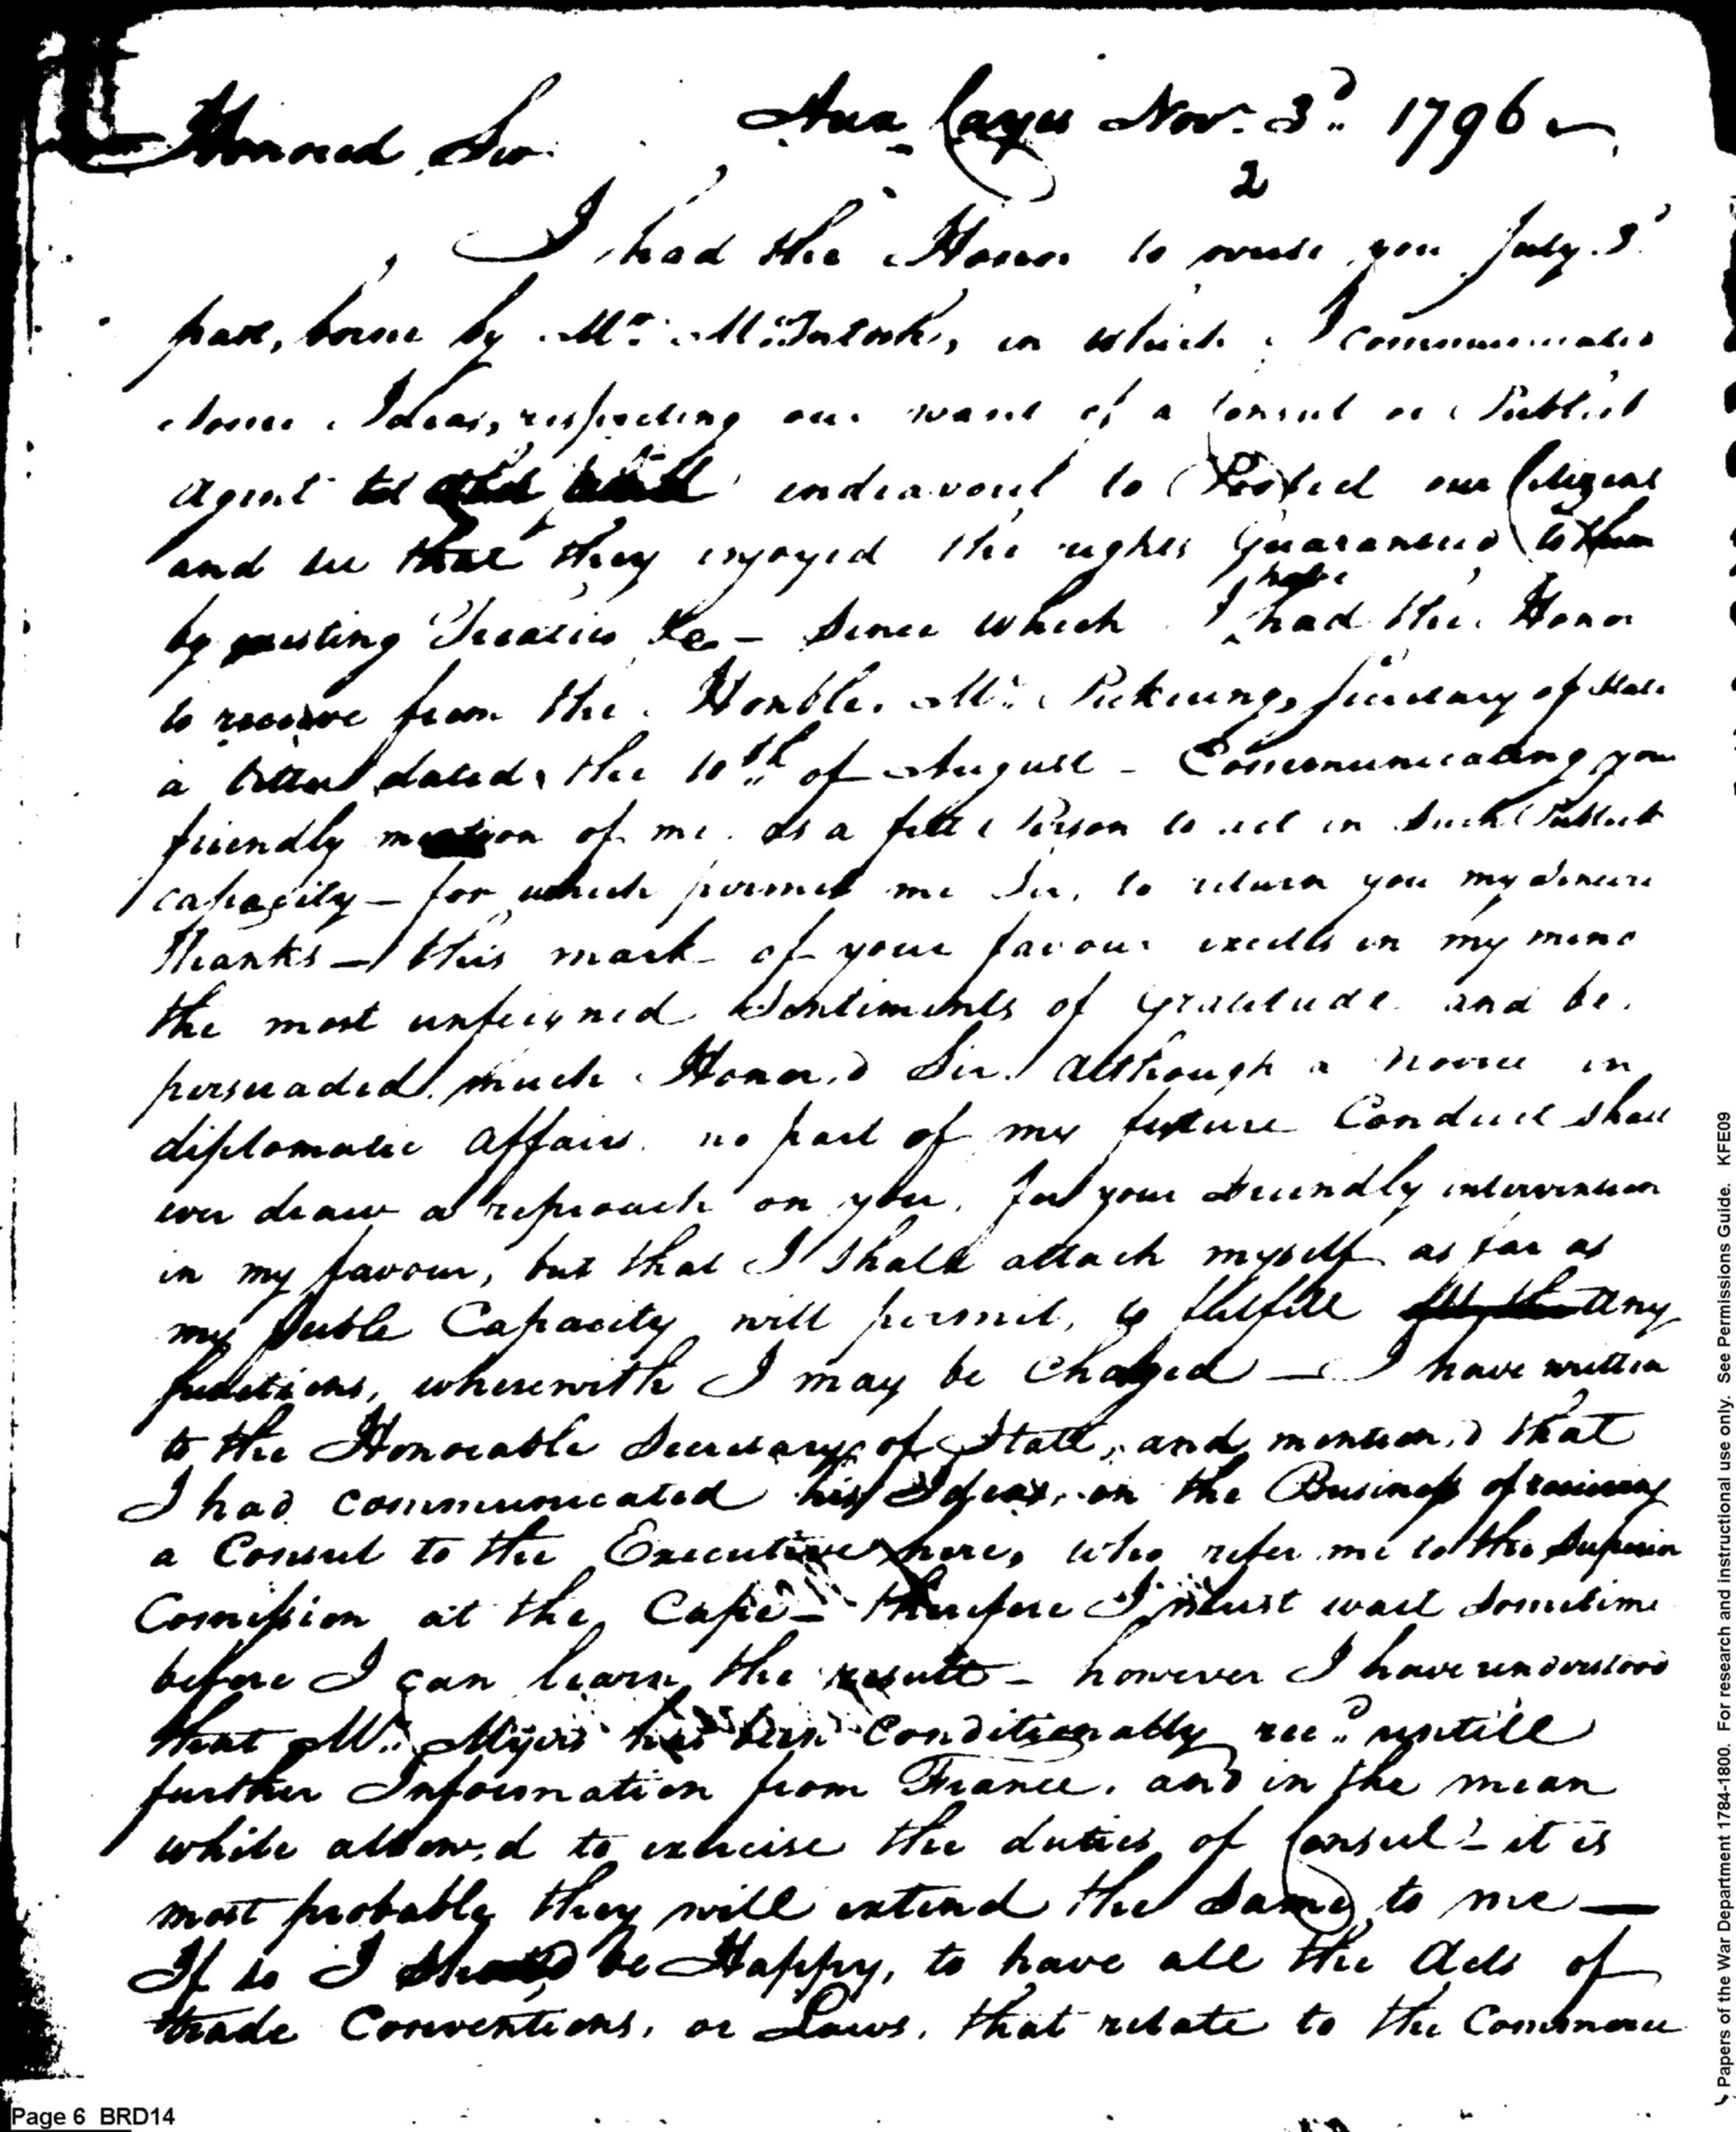 Aux Cayes Nov.r 3.d 1796
Honored Sir
2
I had the Honor to write you July 3d
past, borne by Mr. McIntosh, in which I communicated
some Ideas, respecting our want of a Consul or Publick
Agent to endeavour to Protect our Citizens
and see that they enjoyed the rights Guaranteed to them
by existing Treaties &c – Since which I have had the Honor
to receive from the Honble. Mr. Pickering, Secretary of State
a letter dated the 10th of August – Communicating your
friendly mention of me as a fitt Person to act in such Publick
capacity – for which permit me Sir, to return you my sincere
thanks – this mark of your favour excells in my mind
the most unfeigned Sentiments of Gratitude and be
persuaded much Honor.d Sir although a novice in
diplomatic affairs no part of my future Conduct shall
ever draw a reproach on you, for your friendly intervention
in my favour, but that I shall attach myself as far as
my feeble Capacity will permit, to fulfill any
functions, wherewith I may be Charged — I have written
to the Honorable Secretary of State, and mention.d that
I had communicated his Ideas, on the Business of receiving
a Consul to the Executive here, who refer me to the Superior
Comission at the Cape – therefore I must wait sometime
before I can learn the result – however I have understood
that Mr. Myers has been Conditionally rec.d untill
further Information from France, and in the mean
while allow.d to exercise the duties of Consul – it is
most probable they will extend the Same to me —
If so I should be Happy, to have all the Acts of
trade Conventions, or Laws, that relate to the Commerce
Page 6 BRD14
Papers of the War Department 1784-1800. For research and instructional use only. See Permissions Guide. KFE09